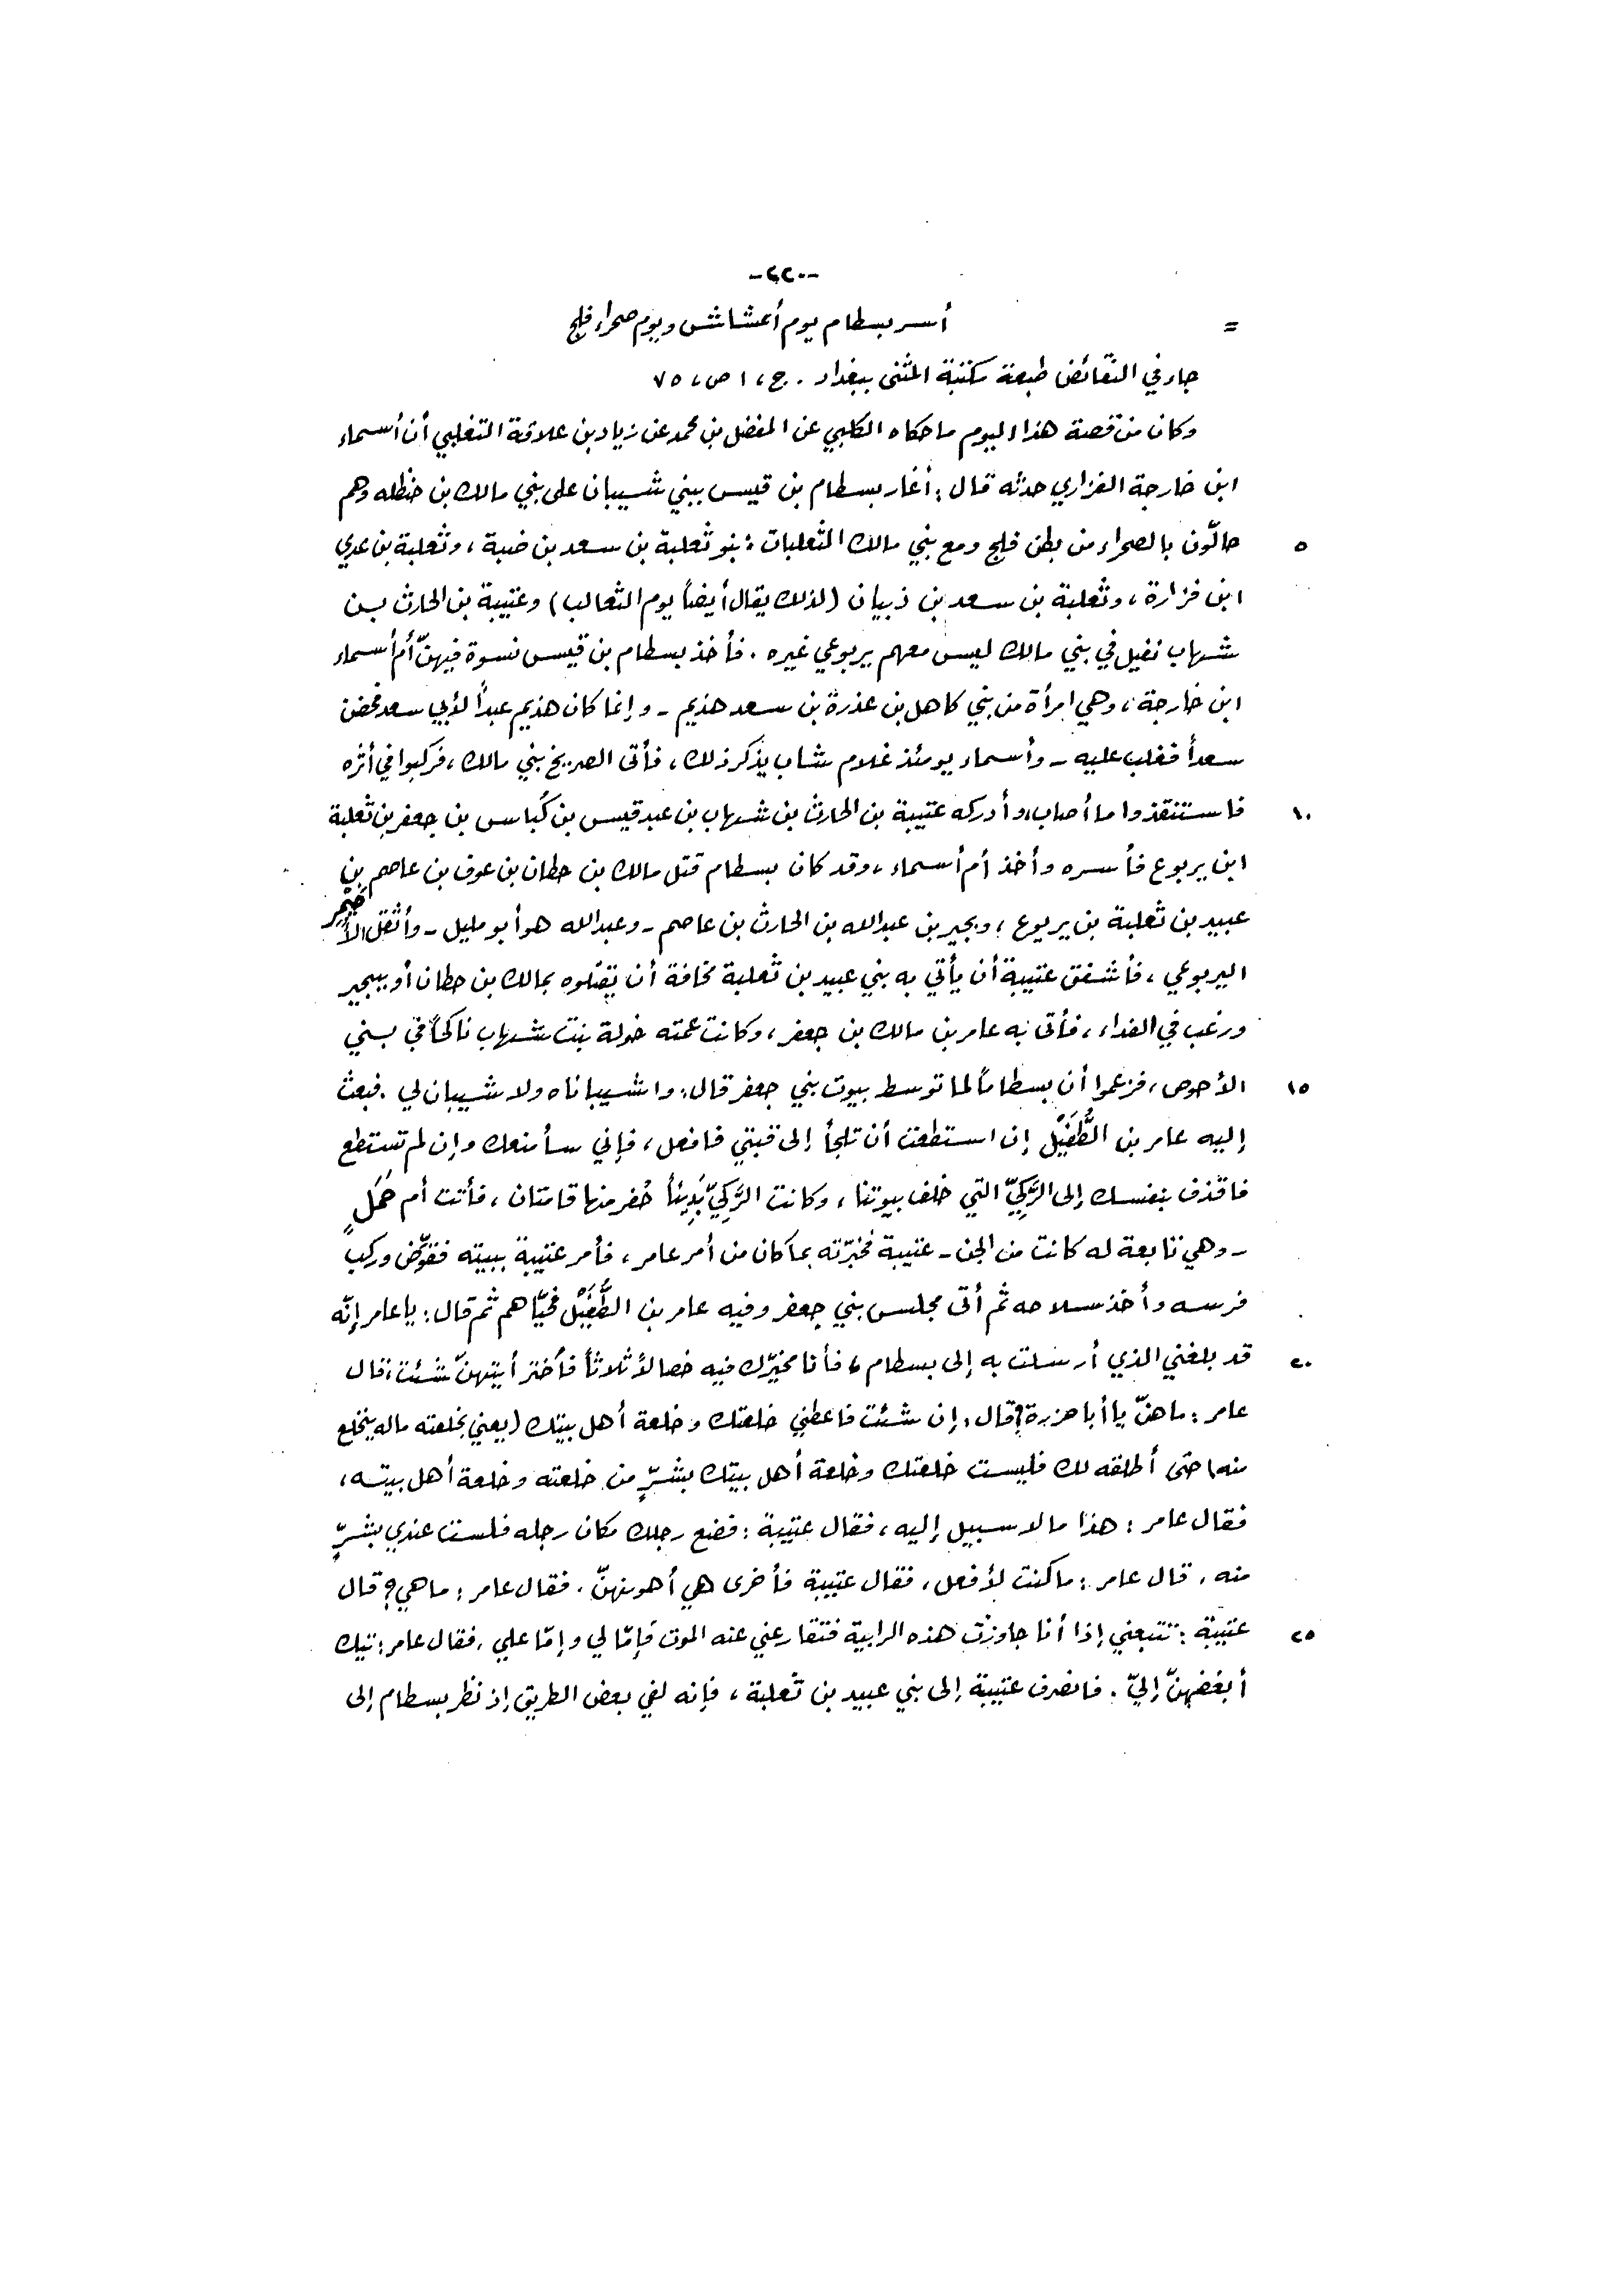 -٢٢٠-
= أسر بسطام يوم أعشاش ويوم صحراء فلج
جاء في النقائض طبعة مكتبة المثنى ببغداد . ج، ١ ص، ٧٥
وكان من قصة هذا اليوم ما حكاه الكلبي عن المفضل بن محمد عن زياد بن علاقة التغلبي أن أسماء
ابن خارجة الفزاري حدثه قال : أغار بسطام بن قيس ببني شيبان على بني مالك بن حنظله وهم
٥ حالّون بالصحراء من بطن فلج ومع بني مالك الثعلبات : بنو ثعلبة بن سعد بن ضبة ، وثعلبة بن عدي
ابن فزارة ، وثعلبة بن سعد بن ذبيان (لذلك يقال أيضاً يوم الثعالب) وعتيبة بن الحارث بن
شهاب نفيل في بني مالك ليس معهم يربوعي غيره . فأخذ بسطام بن قيس نسوة فيهنّ أم أسماء
ابن خارجة ، وهي امرأة من بني كاهل بن عذرة بن سعد هذيم - وإنما كان هذيم عبداً لأبي سعد فحضن
سعداً فغلب عليه - وأسماء يومئذ غلام شاب يذكر ذلك ، فأتى الصريخ بني مالك ، فركبوا في أثره
١٠ فاستنقذوا ما أصاب، وأدركه عتيبة بن الحارث بن شهاب بن عبد قيس بن كُباس بن جعفر بن ثعلبة
ابن يربوع فأسره وأخذ أم أسماء ، وقد كان بسطام قتل مالك بن حطان بن عوف بن عاصم بن
عبيد بن ثعلبة بن يربوع ، وبجير بن عبدالله بن الحارث بن عاصم - وعبدالله هو أبو مليل - وأثقل الأُحَيْمِر
اليربوعي ، فأشفق عتيبة أن يأتي به بني عبيد بن ثعلبة مخافة أن يقتلوه بمالك بن حطان أو ببجير
ورغب في الفداء ، فأتى به عامر بن مالك بن جعفر ، وكانت عمته خولة بنت شهاب ناكحاً في بني
١٥ الأحوص ، فزعموا أن بسطاماً لما توسط بيوت بني جعفر قال : وا شيباناه ولا شيبان لي . فبعث
إليه عامر بن الطُّفَيْل إن استطعت أن تلجأ إلى قبتي فافعل ، فإني سأمنعك وإن لم تستطع
فاقذف بنفسك إلى الرَّكِيّ التي خلف بيوتنا ، وكانت الرَّكِيّ بَدِيئاً حُفر منها قامتان ، فأتت أم حَمَلٍ
- وهي تابعة له كانت من الجن - عتيبة فخبّرته بما كان من أمر عامر ، فأمر عتيبة ببيته فقوّض وركب
فرسه وأخذ سلاحه ثم أتى مجلس بني جعفر وفيه عامر بن الطُّفَيْل فحيّاهم ثم قال : يا عامر إنّه
٢٠ قد بلغني الذي أرسلت به إلى بسطام ، فأنا مخيّرك فيه خصالاً ثلاثاً فأختر أيتهنّ شئت ، قال
عامر : ما هنّ يا أبا حزرة ؟ قال : إن شئت فاعطني خلعتك وخلعة أهل بيتك (يعني بخلعته ماله ينخلع
منه) حتى أطلقه لك فليست خلعتك وخلعة أهل بيتك بشرٍّ من خلعته وخلعة أهل بيته ،
فقال عامر : هذا ما لا سبيل إليه ، فقال عتيبة : فضع رجلك مكان رجله فلست عندي بشرٍّ
منه . قال عامر : ما كنت لأفعل ، فقال عتيبة فأخرى هي أهونهنّ . فقال عامر : ما هي ؟ قال
٢٥ عتيبة : تتبعني إذا أنا جاوزت هذه الرابية فتقارعني عنه الموت فإمّا لي وإمّا علي . فقال عامر : تيك
أبغضهنّ إليّ . فانصرف عتيبة إلى بني عبيد بن ثعلبة ، فإنه لفي بعض الطريق إذ نظر بسطام إلى